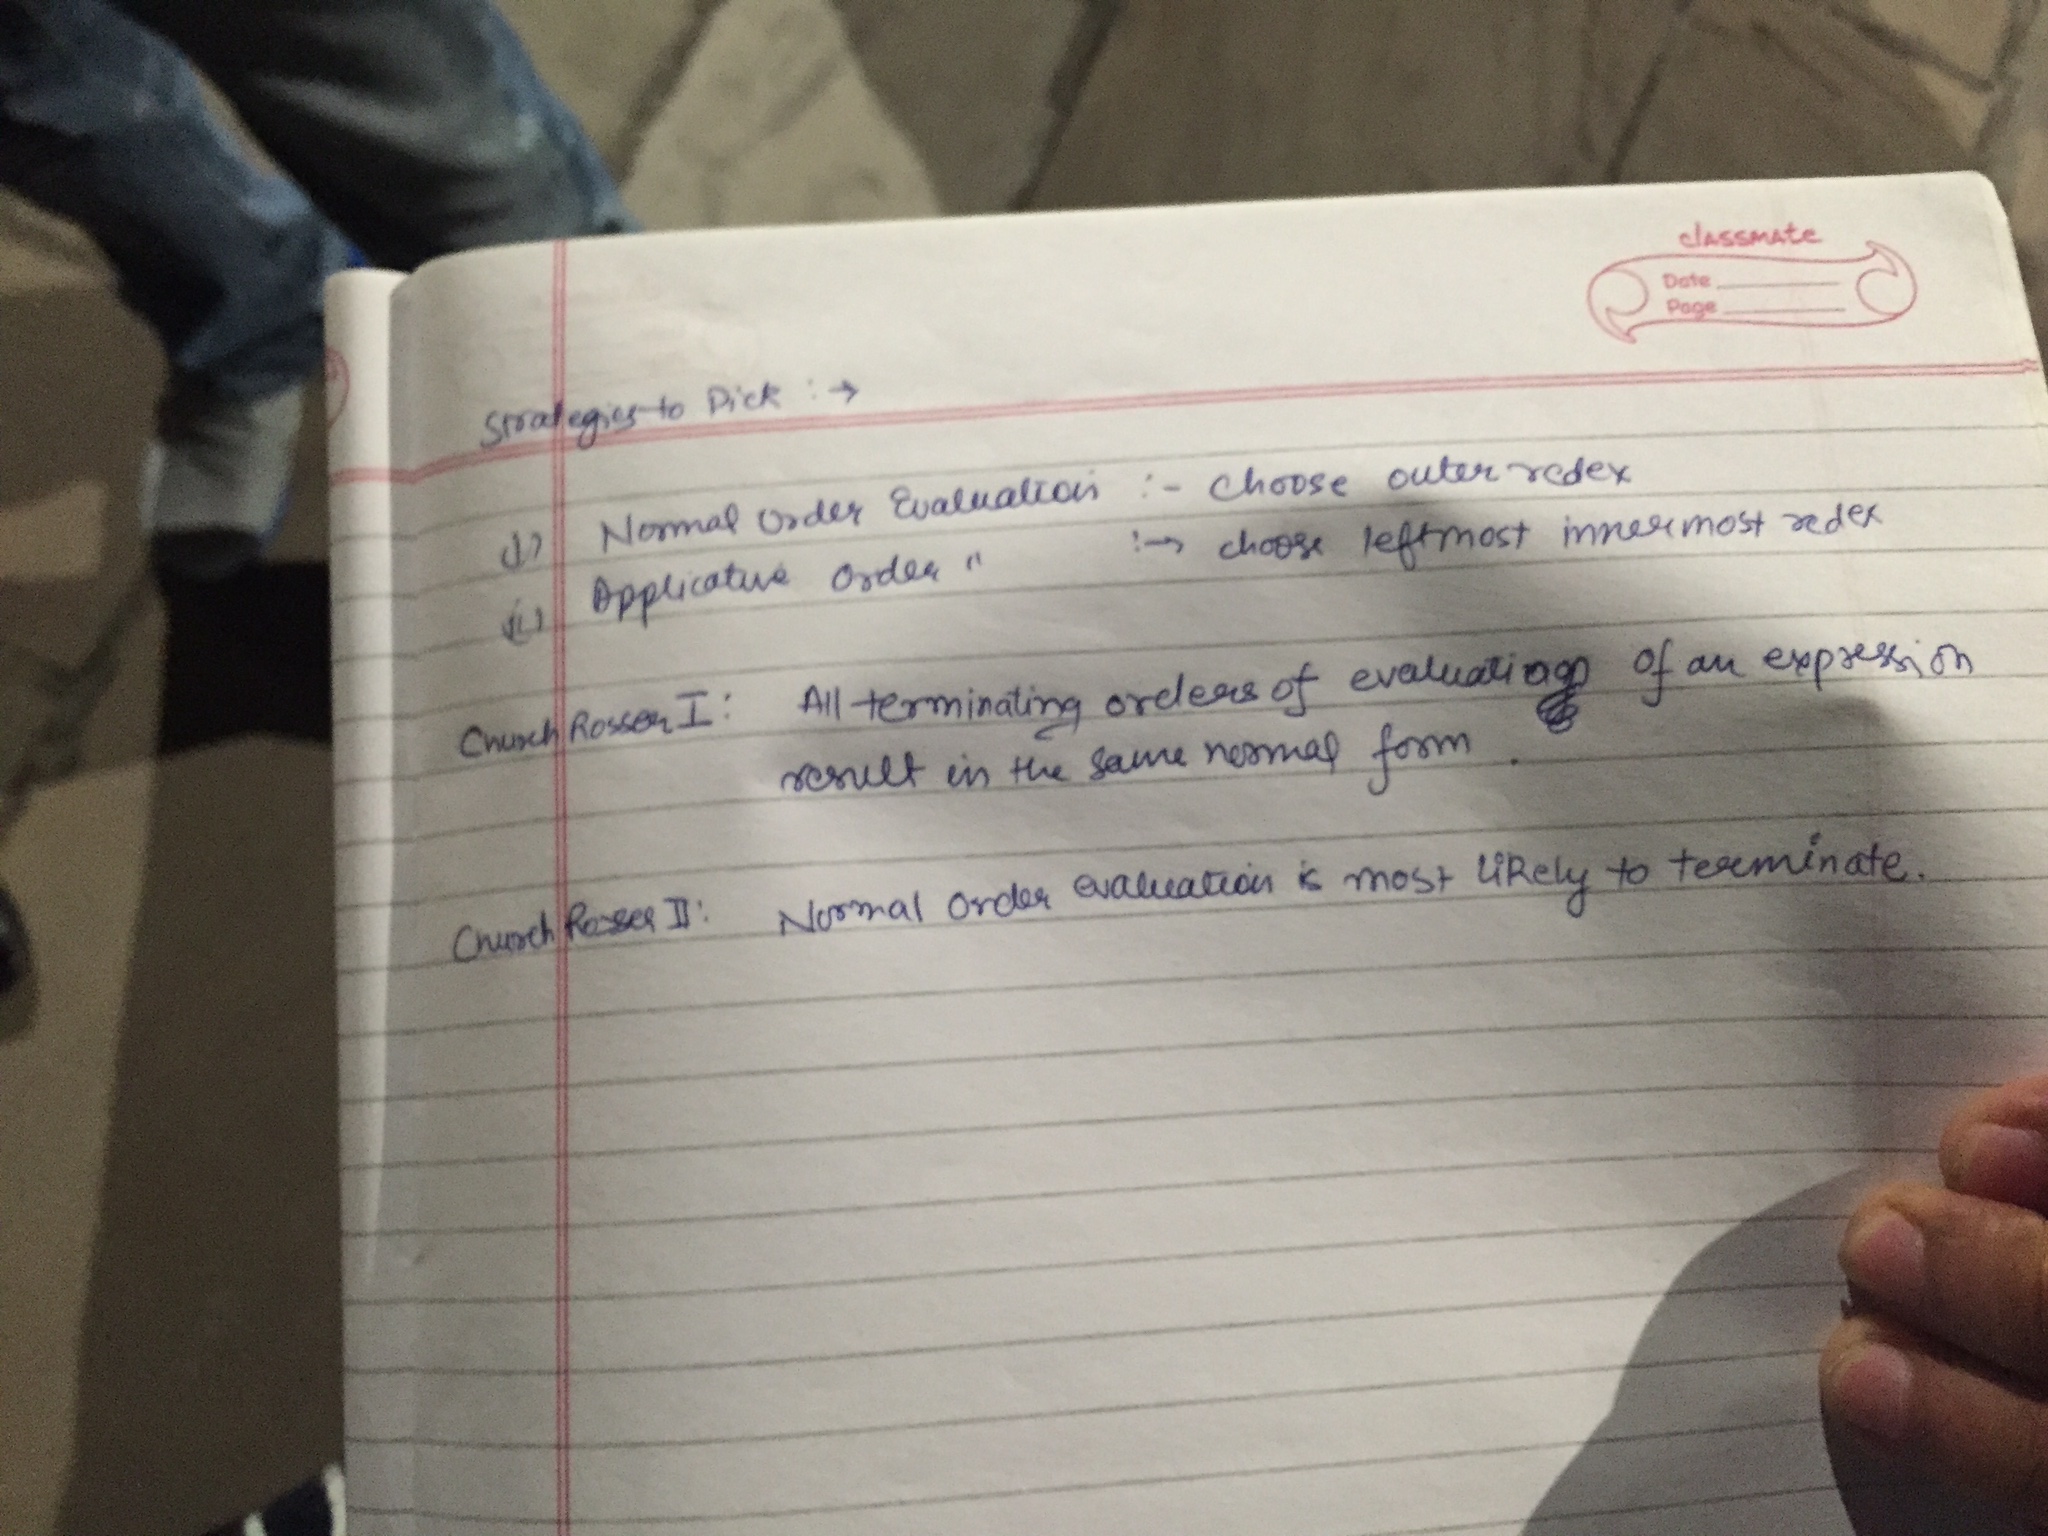 classmate
Date
Page
Strategies to Pick :→
(i) Normal Order Evaluation :- choose outer redex
(ii) Applicative Order " :→ choose leftmost innermost redex
Church Rosser I : All terminating orders of evaluation of an expression
result in the same normal form .
Church Rosser II : Normal Order evaluation is most likely to terminate.